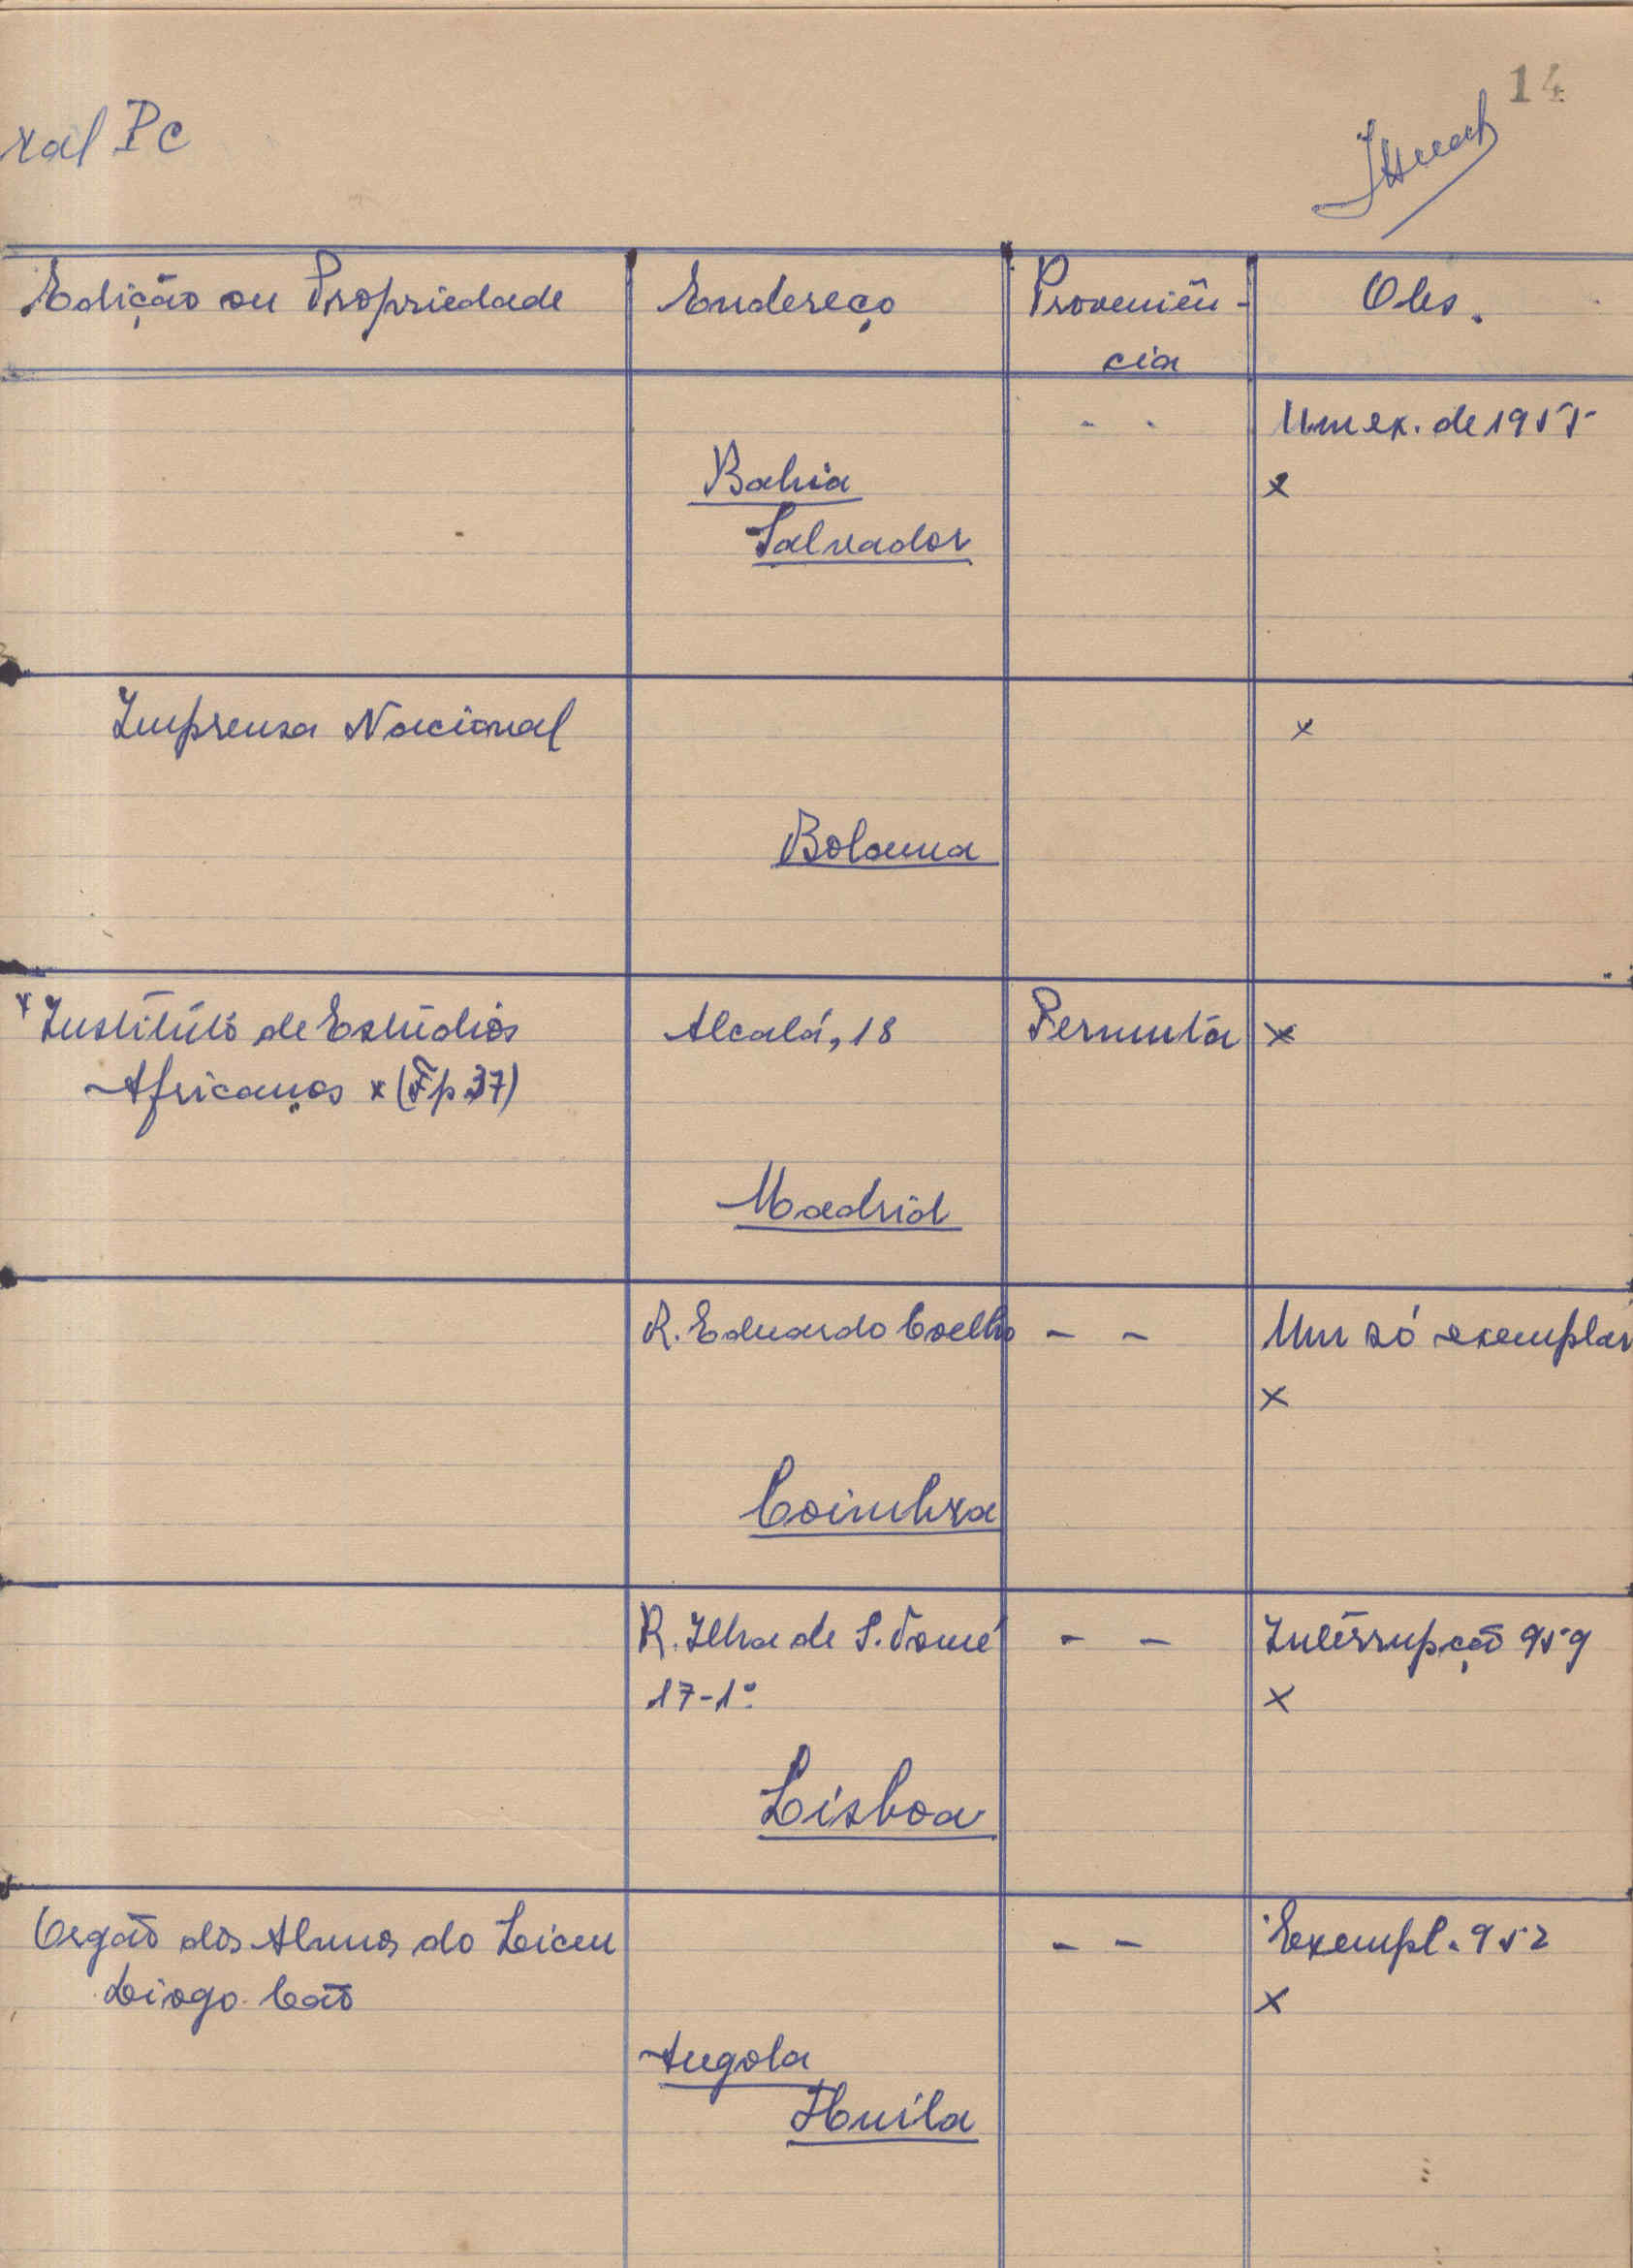 14
ral Pc
Edição ou Propriedade Endereço Proveniên- Obs.
cia
- - Um ex. de 1955
Bahia x
Salvador
Imprensa Nacional x
Bolama
x Instituto de Estudios Alcalá, 18 Permuta x
Africanos x (Fp. 37)
Madrid
R. Eduardo Coelho - - Um só exemplar
x
Coimbra
R. Ilha de S. Tomé - - Interrupção 959
17-1º x
Lisboa
Orgão dos Alunos do Liceu - - Exempl. 952
Diogo Cão x
Angola
Huíla